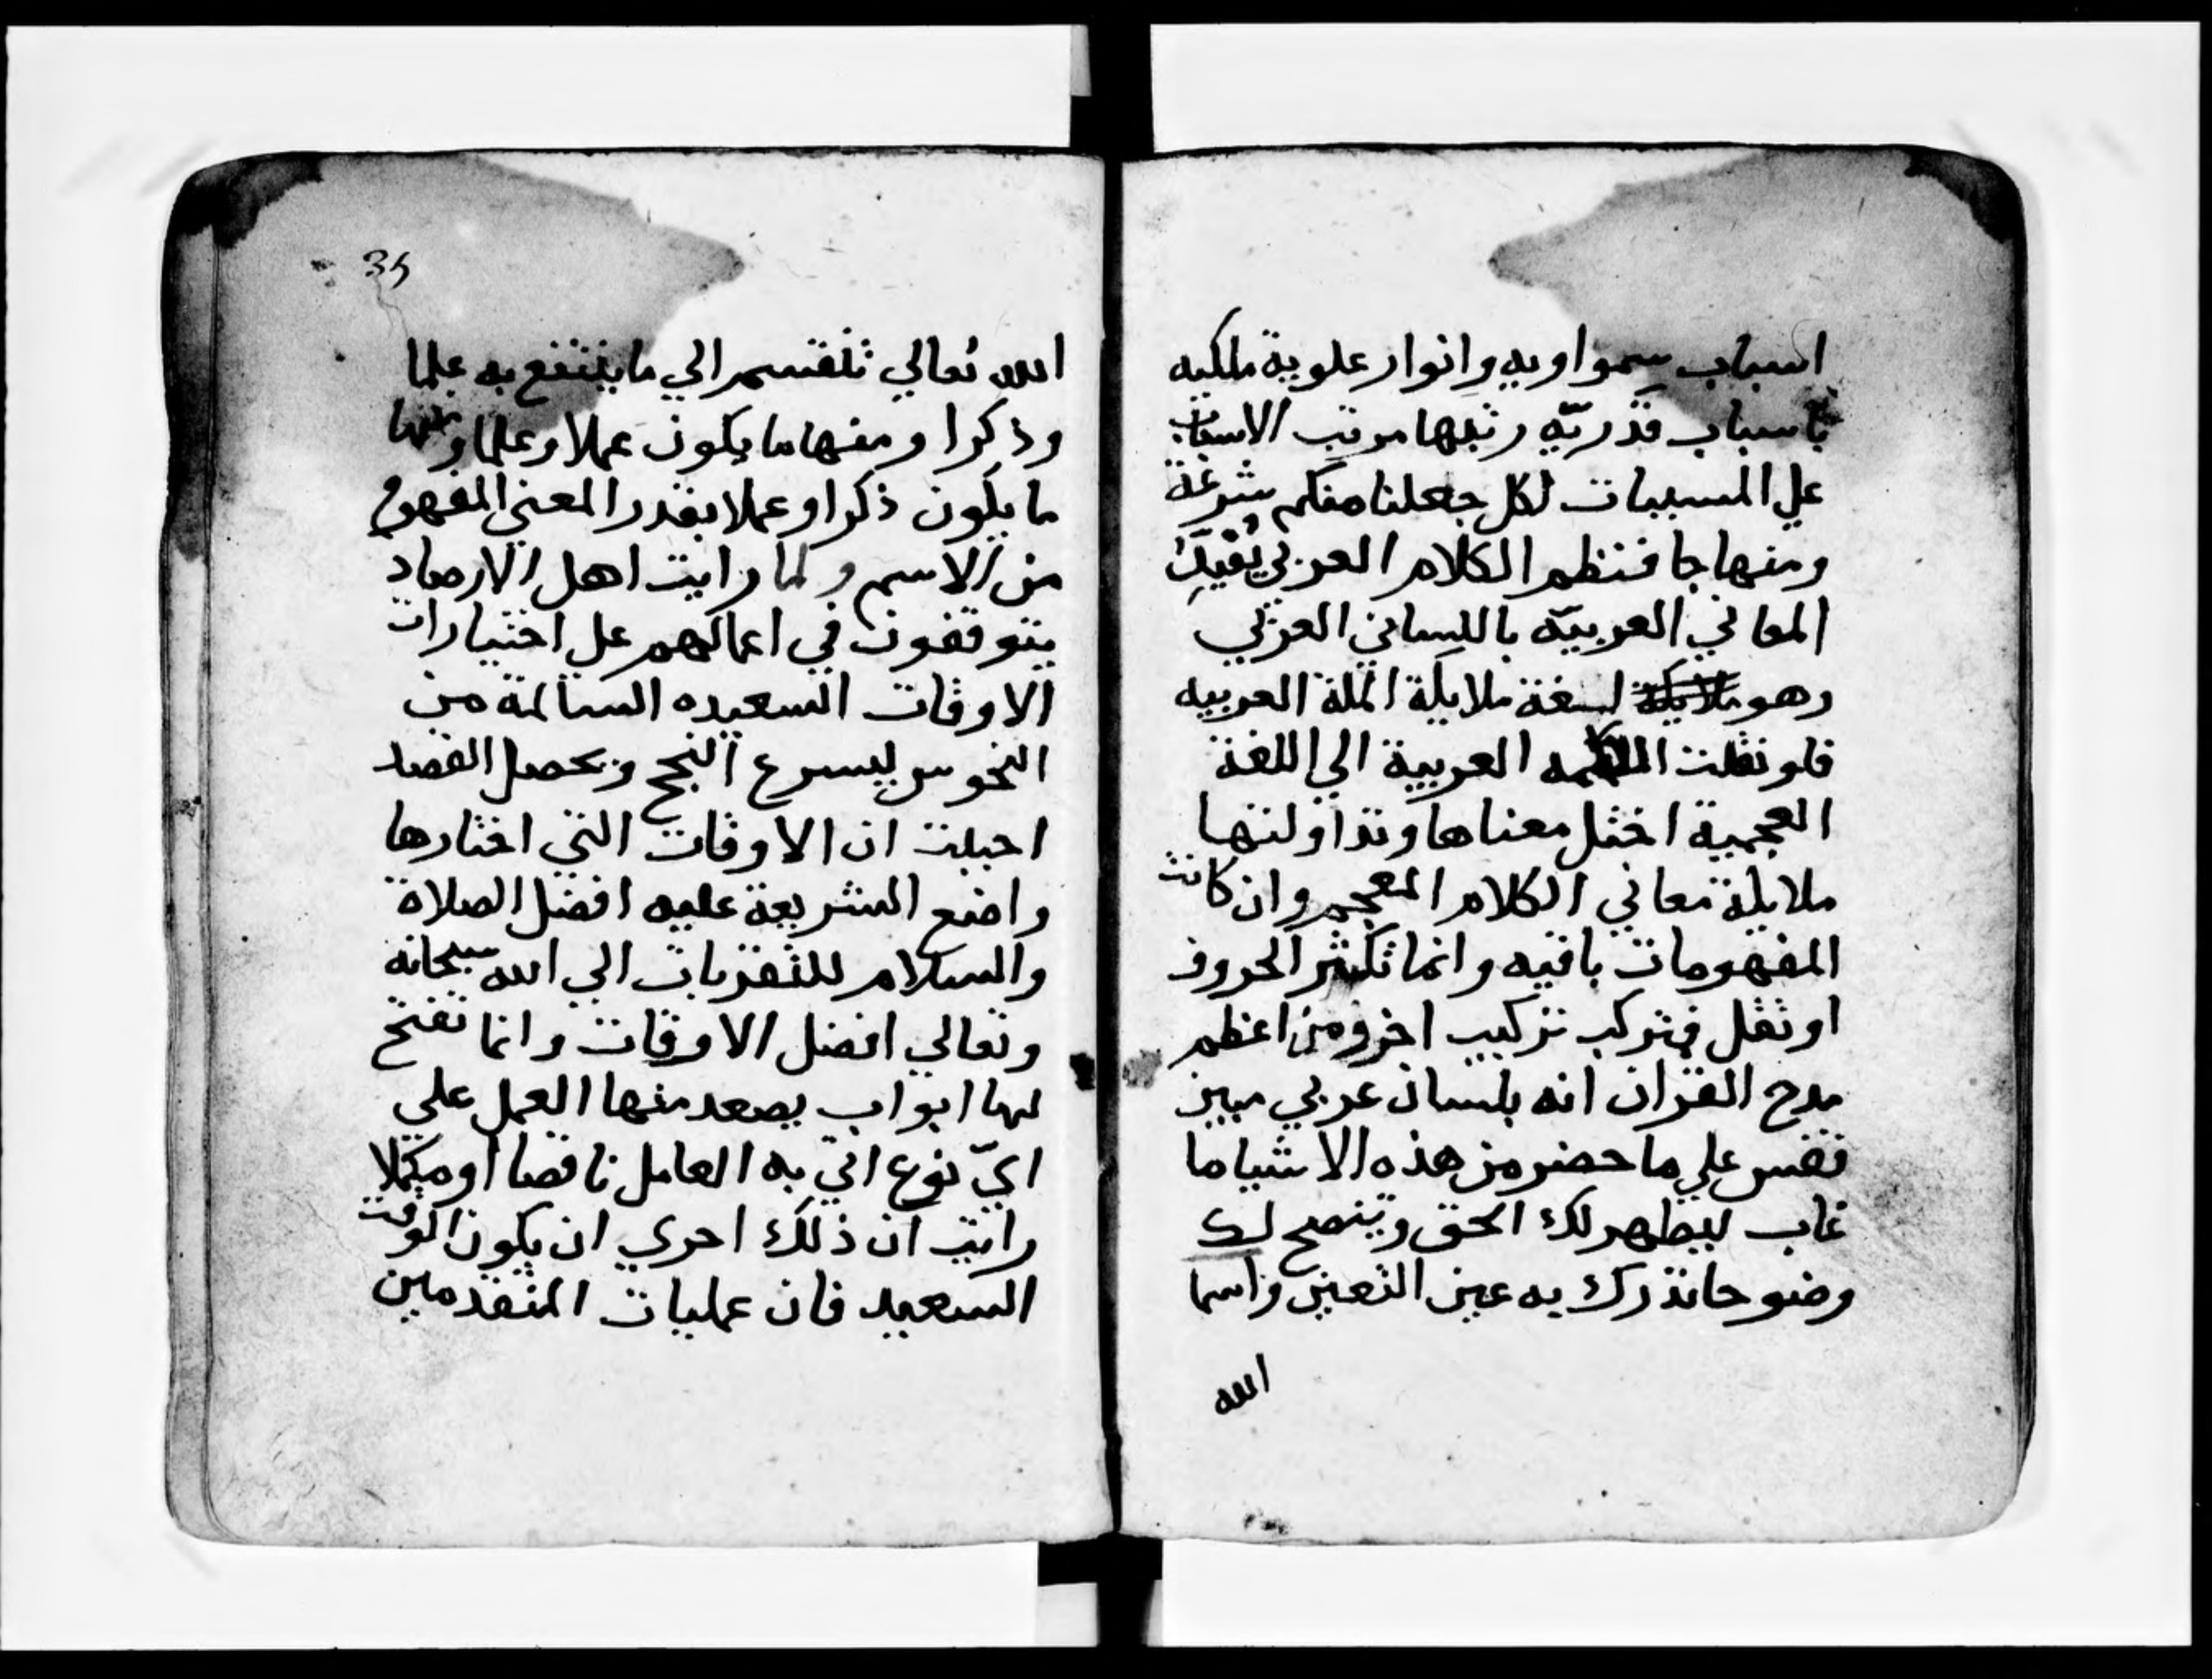 اسباب سمواويه وانوار علوية ملكيه
باسباب قدريّه رتبها مرتب الاسباب
علي المسببات لكل جعلنا منكم شرعة
ومنهاجا فنظم الكلام العربي يُفيدُ
المعاني العربيّه باللسان العربي
وهو لغة ملايكة الملة العربيه
فلو نقلت العربية الي اللغة
العجمية اختل معناها وتداولتها
ملايكة معاني الكلام المعجم وان كانت
المفهومات باقيه وانما تكثر الحروف
او تقل فتركب تركيب اخر ومن اعظم
مدح القران انه بلسان عربي مبين
فقس علي ما حضر من هذه الاشيا ما
غاب ليظهر لك الحق ويتضح لك
وضوحا تدرك به عين التعين واسما
الله
35
الله تعالي تنقسم الي ما ينتفع به علما
وذكرا ومنها ما يكون عملا وعلما ومنها
ما يكون ذكرا وعملا بقدر المعني المفهوم
من الاسم ولما رايت اهل الارصاد
يتوقفون في اعمالهم علي اختيارات
الاوقات السعيده السالمة من
النحوس ليسرع النجح ويحصل القصد
احببت ان الاوقات التي اختارها
واضع الشريعة عليه افضل الصلاة
والسلام للتقربات الي الله سبحانه
وتعالي افضل الاوقات وانما تفتح
لها ابواب يصعد منها العمل علي
ايّ نوع اتي به العامل ناقصا او مكملا
رايت ان ذلك احري ان يكون الوقت
السعيد فان عمليات المتقدمين